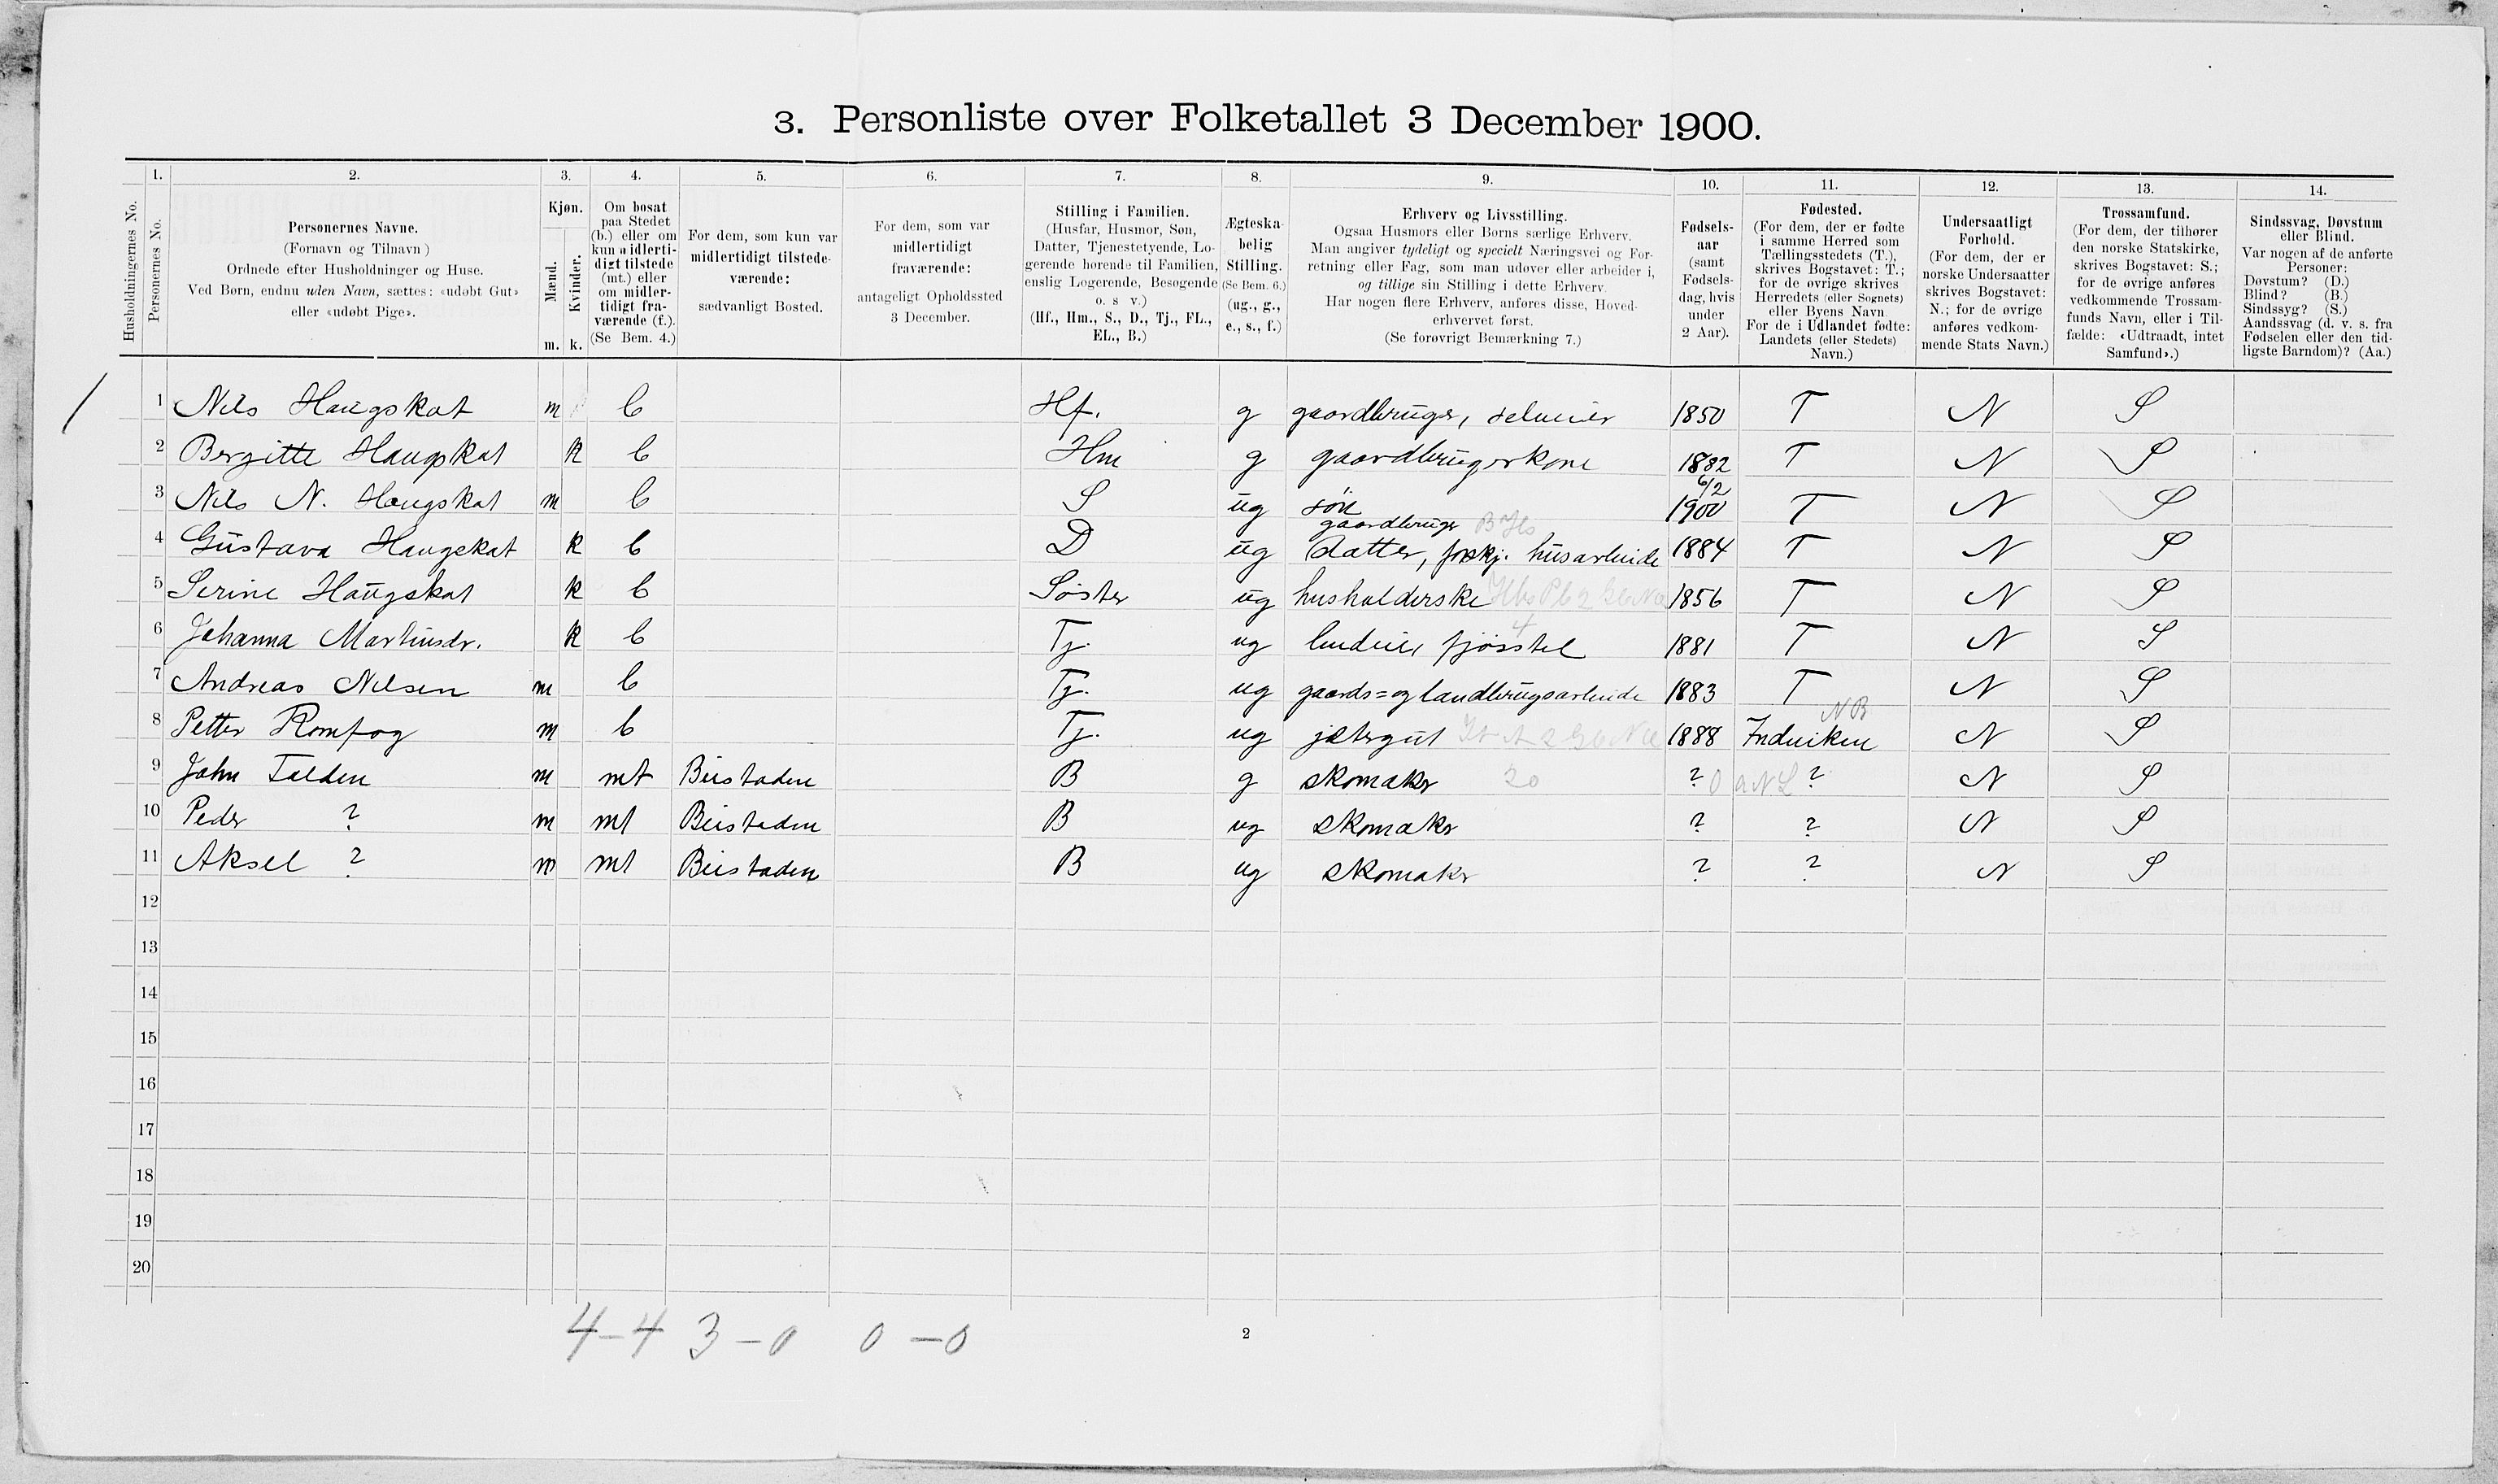 3. Personliste over Folketallet 3 December 1900.
1. 2. 3. 4. 5. 6. 7. 8. 9. 10. 11. 12. 13. 14.
Husholdningernes No.
Personernes No.
Personernes Navne.
(Fornavn og Tilnavn)
Ordnede efter Husholdninger og Huse.
Ved Børn, endnu uden Navn, sættes: «udøbt Gut»
eller «udøbt Pige».
Kjøn.
Mænd.
Kvinder.
m. k.
Om bosat
paa Stedet
(b.) eller om
kun midlerti-
digt tilstede
(mt.) eller
om midler-
tidigt fra-
værende (f.).
(Se Bem. 4.)
For dem, som kun var
midlertidigt tilstede-
værende:
sædvanligt Bosted.
For dem, som var
midlertidigt
fraværende:
antageligt Opholdssted
3 December.
Stilling i Familien.
(Husfar, Husmor, Søn,
Datter, Tjenestetyende, Lo-
gerende hørende til Familien,
enslig Logerende, Besøgende
o. s v.)
(Hf., Hm., S., D., Tj., FL.,
EL., B.)
Ægteska-
belig
Stilling.
(Se Bem. 6.)
(ug., g.,
e., s., f.)
Erhverv og Livsstilling.
Ogsaa Husmors eller Børns særlige Erhverv.
Man angiver tydeligt og specielt Næringsvei og For-
retning eller Fag, som man udøver eller arbeider i,
og tillige sin Stilling i dette Erhverv.
Har nogen flere Erhverv, anføres disse, Hoved-
erhvervet først.
(Se forøvrigt Bemærkning 7.)
Fødsels-
aar
(samt
Fødsels-
dag, hvis
under
2 Aar).
Fødested.
(For dem, der er fødte
i samme Herred som
Tællingsstedets (T.),
skrives Bogstavet: T.;
for de øvrige skrives
Herredets (eller Sognets)
eller Byens Navn.
For de i Udlandet fødte:
Landets (eller Stedets)
Navn.)
Undersaatligt
Forhold.
(For dem, der er
norske Undersaatter
skrives Bogstavet:
N.; for de øvrige
anføres vedkom-
mende Stats Navn.)
Trossamfund.
(For dem, der tilhører
den norske Statskirke,
skrives Bogstavet: S.;
for de øvrige anføres
vedkommende Trossam-
funds Navn, eller i Til-
fælde: «Udtraadt, intet
Samfund».)
Sindssvag, Døvstum
eller Blind.
Var nogen af de anførte
Personer:
Døvstum? (D.)
Blind? (B.)
Sindssyg? (S.)
Aandssvag (d. v. s. fra
Fødselen eller den tid-
ligste Barndom)? (Aa.)
1 Nils Haugskat m b Hf. g gaardbruger, selveier 1850 T N S
2 Bergitte Haugskat k b Hm g gaardbrugerkone 1882 T N S
3 Nils N. Haugskat m b S ug søn 6/2 1900 T N S
4 Gustava Haugskat k b D ug gaardbruger datter, forskj. husarbeide 1884 T N S
5 Serine Haugskat k b Søster ug husholderske 1856 T N S
6 Johanna Martinsdr. k b Tj. ug budeie, fjøsstel 1881 T N S
7 Andreas Nilsen m b Tj. ug gaards= og landbrugsarbeide 1883 T N S
8 Petter Romfog m b Tj. ug jætergut 1888 Inderviken NB N S
9 John Falden m mt Beistaden B g skomaker 20 ? ? N S
10 Peder ? m mt Beistaden B ug skomaker ? ? N S
11 Aksel ? m mt Beistaden B ug skomaker ? ? N S
12
13
14
15
16
17
18
19
20
4-4 3-0 0-0
2